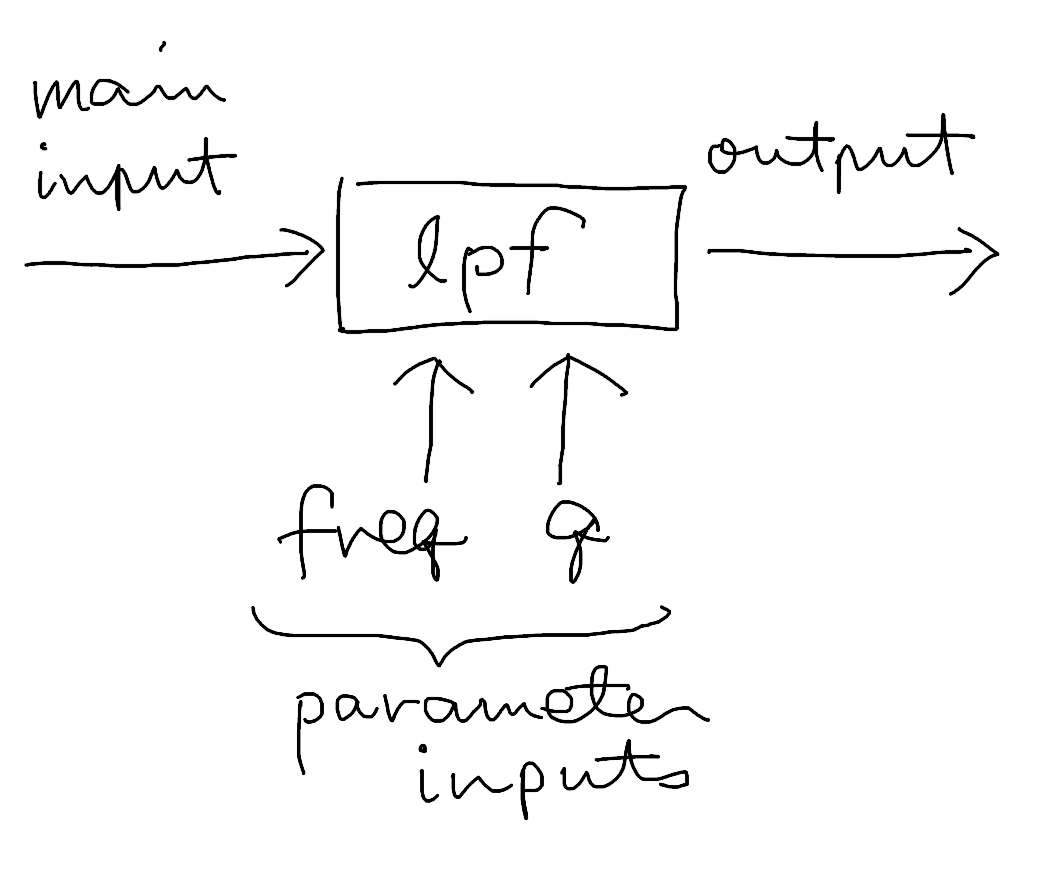 main
input
output
lpf
freq q
parameter
inputs